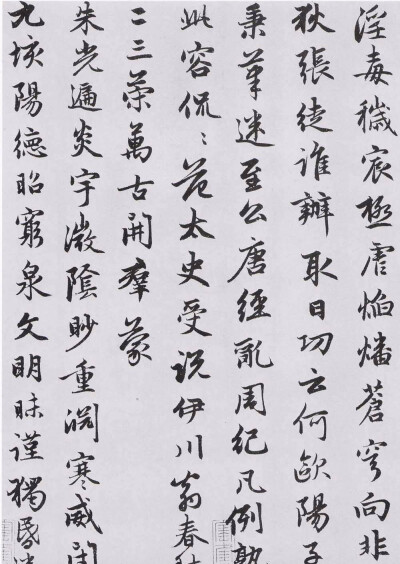 淫毒穢宸極虐焰燔蒼穹向非
狄張徒誰辦取日功云何歐陽子
秉筆迷至公唐經亂周紀凡例孰
此容侃〻范太史受説伊川翁春秋
二三策萬古開羣蒙
朱光遍炎宇微陰眇重淵寒威閉
九垓陽德昭窮泉文明昧謹獨昏